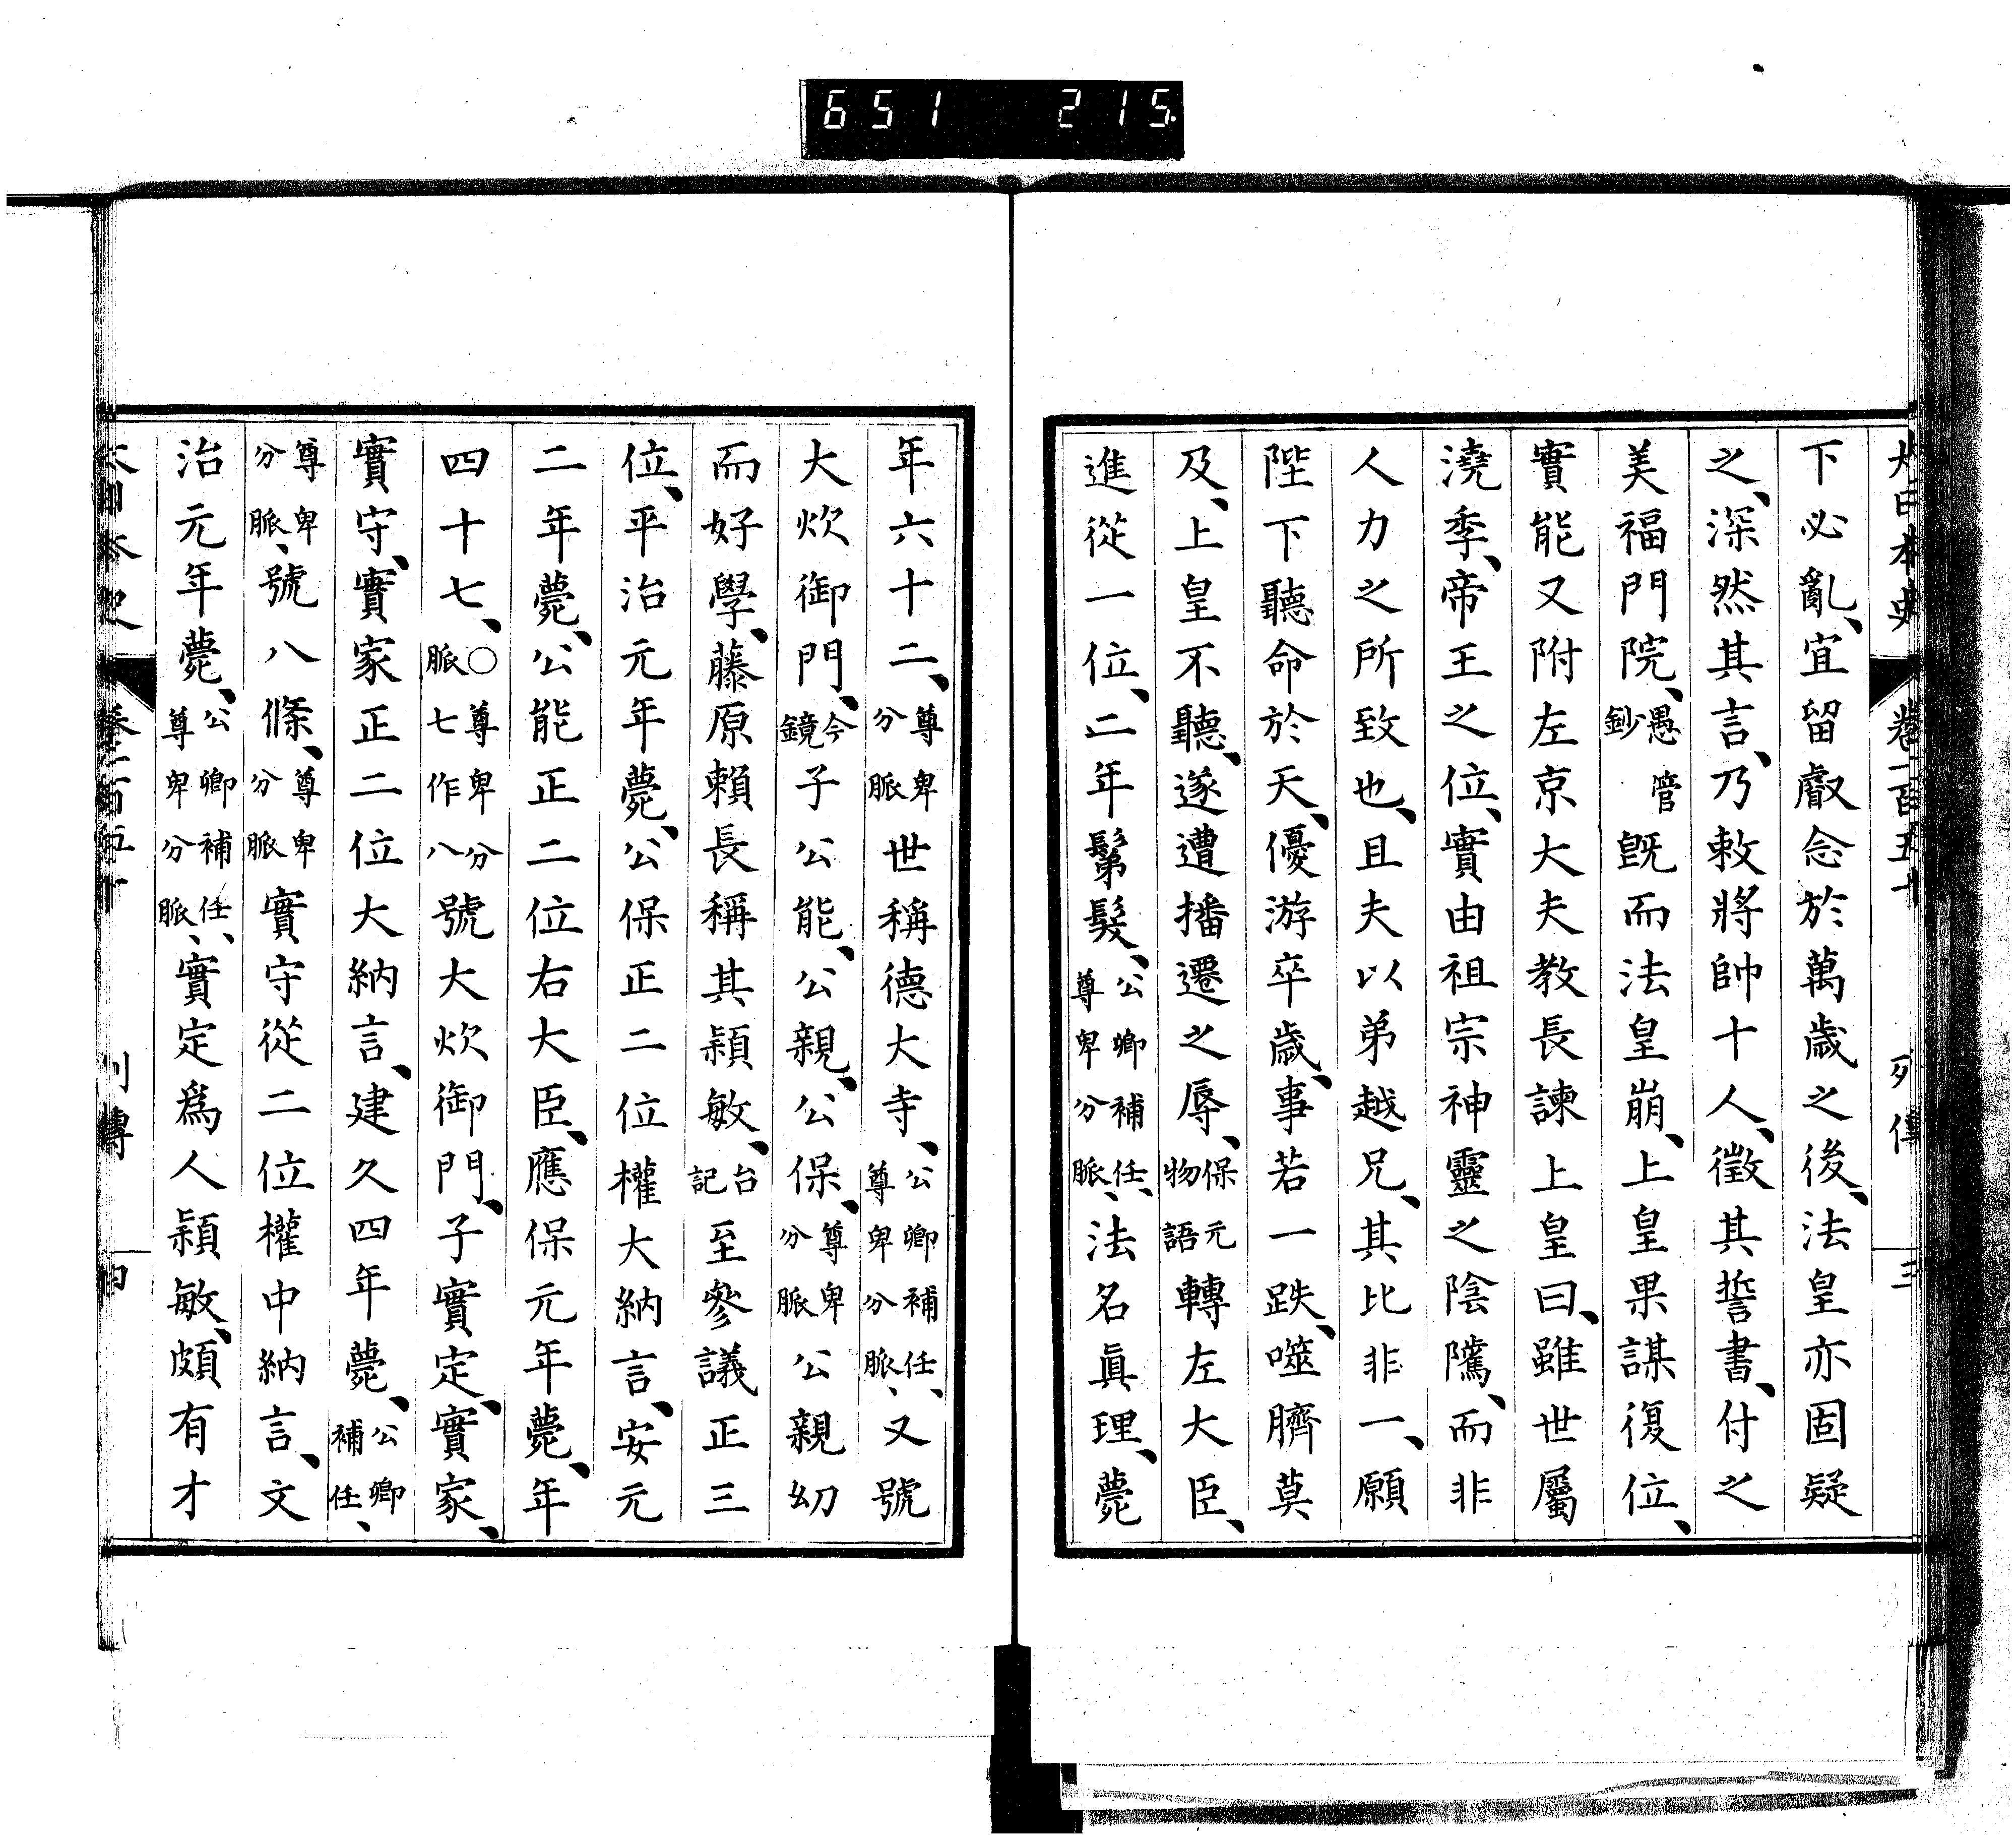 651 215
大日本史 卷一百五十 列傳 三
下必亂、宜留叡念於萬歲之後、法皇亦固疑
之、深然其言、乃敕將帥十人、徵其誓書、付之
美福門院、愚管鈔既而法皇崩、上皇果謀復位、
實能又附左京大夫教長諫上皇曰、雖世屬
澆季、帝王之位、實由祖宗神靈之陰隲、而非
人力之所致也、且夫以弟越兄、其比非一、願
陛下聽命於天、優游卒歲、事若一跌、噬臍莫
及、上皇不聽、遂遭播遷之辱、保元物語轉左大臣、
進從一位、二年鬀髮、公卿補任、尊卑分脈、法名眞理、薨
年六十二、尊卑分脈世稱德大寺、公卿補任、尊卑分脈、又號
大炊御門、今鏡子公能、公親、公保、尊卑分脈公親幼
而好學、藤原賴長稱其穎敏、台記至參議正三
位、平治元年薨、公保正二位權大納言、安元
二年薨、公能正二位右大臣、應保元年薨、年
四十七、○尊卑分脈七作八號大炊御門、子實定、實家、
實守、實家正二位大納言、建久四年薨、公卿補任、
尊卑分脈、號八條、尊卑分脈實守從二位權中納言、文
治元年薨、公卿補任、尊卑分脈、實定爲人穎敏、頗有才
大日本史 卷一百五十 列傳 四